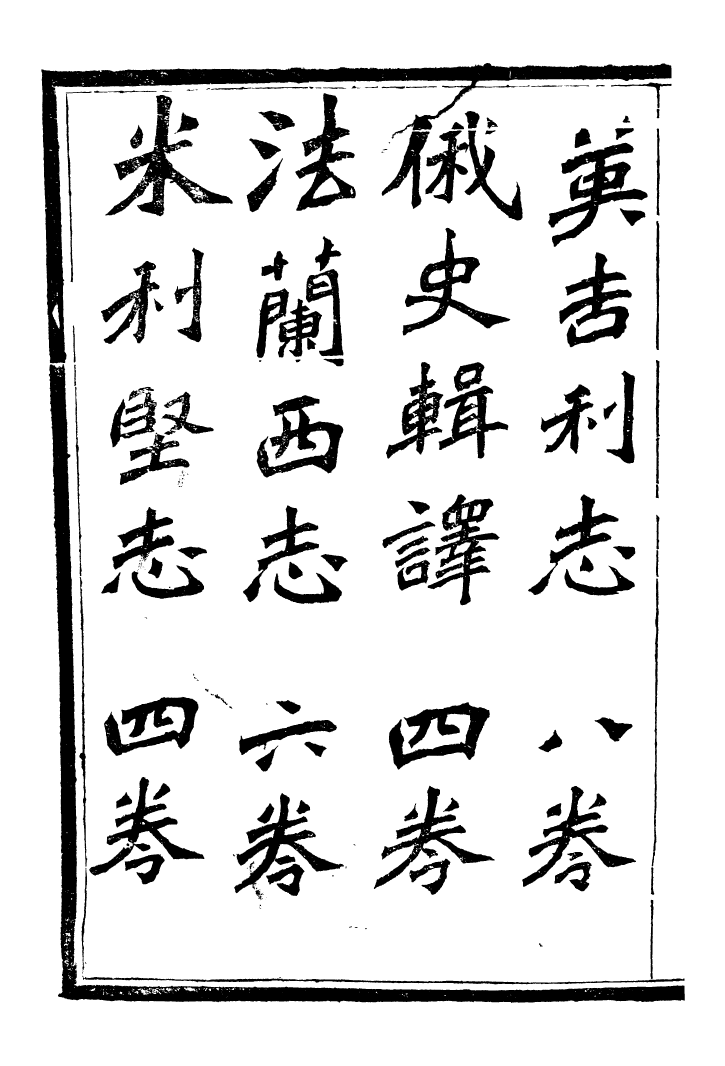 英吉利志　八卷
俄史輯譯　四卷
法蘭西志　六卷
米利堅志　四卷